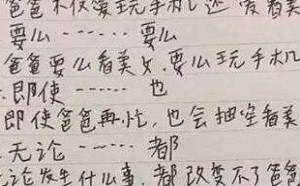 爸爸不仅爱玩手机还爱看美
要么……要么
爸爸要么看美女,要么玩手机
即使……也
即使爸爸再忙,也会抽空看美
无论……都
论发生什么事,都改变不了爸爸